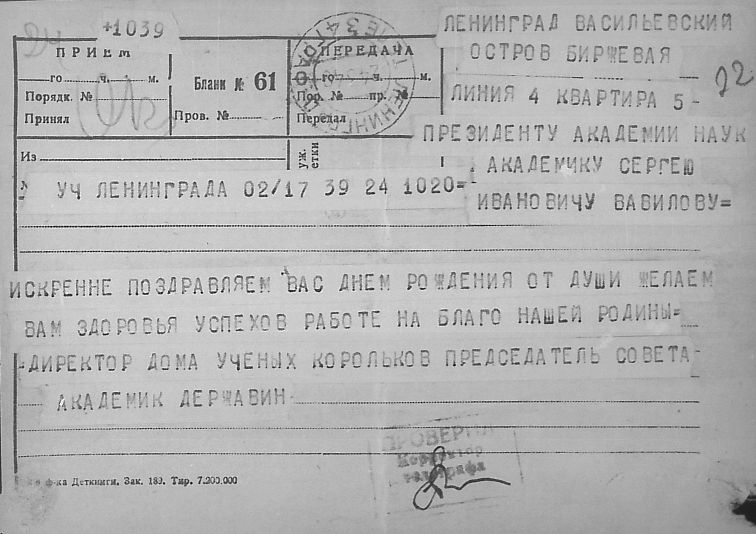 +1039
ПРИЕМ
го ч. м.
Порядк. №
Принял
Бланк № 61
Пров. №
ПЕРЕДАЧА
го ч. м.
Пор. № пр. №
Передал
ЛЕНИНГРАД ВАСИЛЬЕВСКИЙ
ОСТРОВ БИРЖЕВАЯ
ЛИНИЯ 4 КВАРТИРА 5-
ПРЕЗИДЕНТУ АКАДЕМИИ НАУК
АКАДЕМИКУ СЕРГЕЮ
ИВАНОВИЧУ ВАВИЛОВУ=
Из
УЧ ЛЕНИНГРАДА 02/17 39 24 1020=
ИСКРЕННЕ ПОЗДРАВЛЯЕМ ВАС ДНЕМ РОЖДЕНИЯ ОТ ДУШИ ЖЕЛАЕМ
ВАМ ЗДОРОВЬЯ УСПЕХОВ РАБОТЕ НА БЛАГО НАШЕЙ РОДИНЫ=
-ДИРЕКТОР ДОМА УЧЕНЫХ КОРОЛЬКОВ ПРЕДСЕДАТЕЛЬ СОВЕТА-
АКАДЕМИК ДЕРЖАВИН-
ф-ка Деткниги. Зак. 189. Тир. 7.200.000